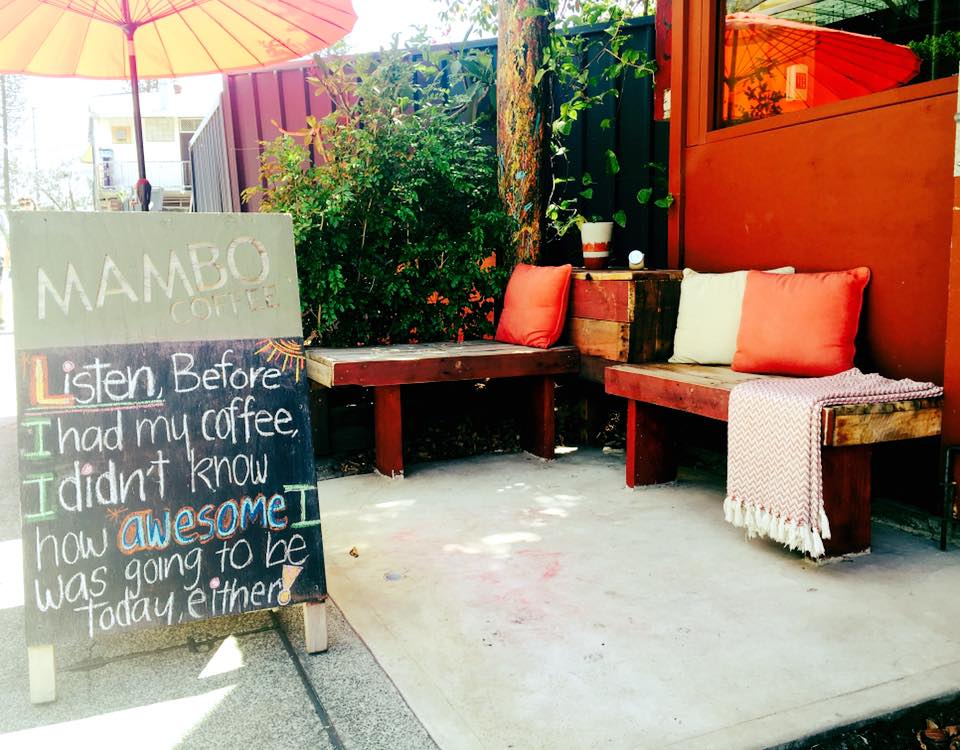 MAMBO
COFFEE
Listen, Before
I had my coffee,
I didn't know
how awesome I
was going to be
today, either!